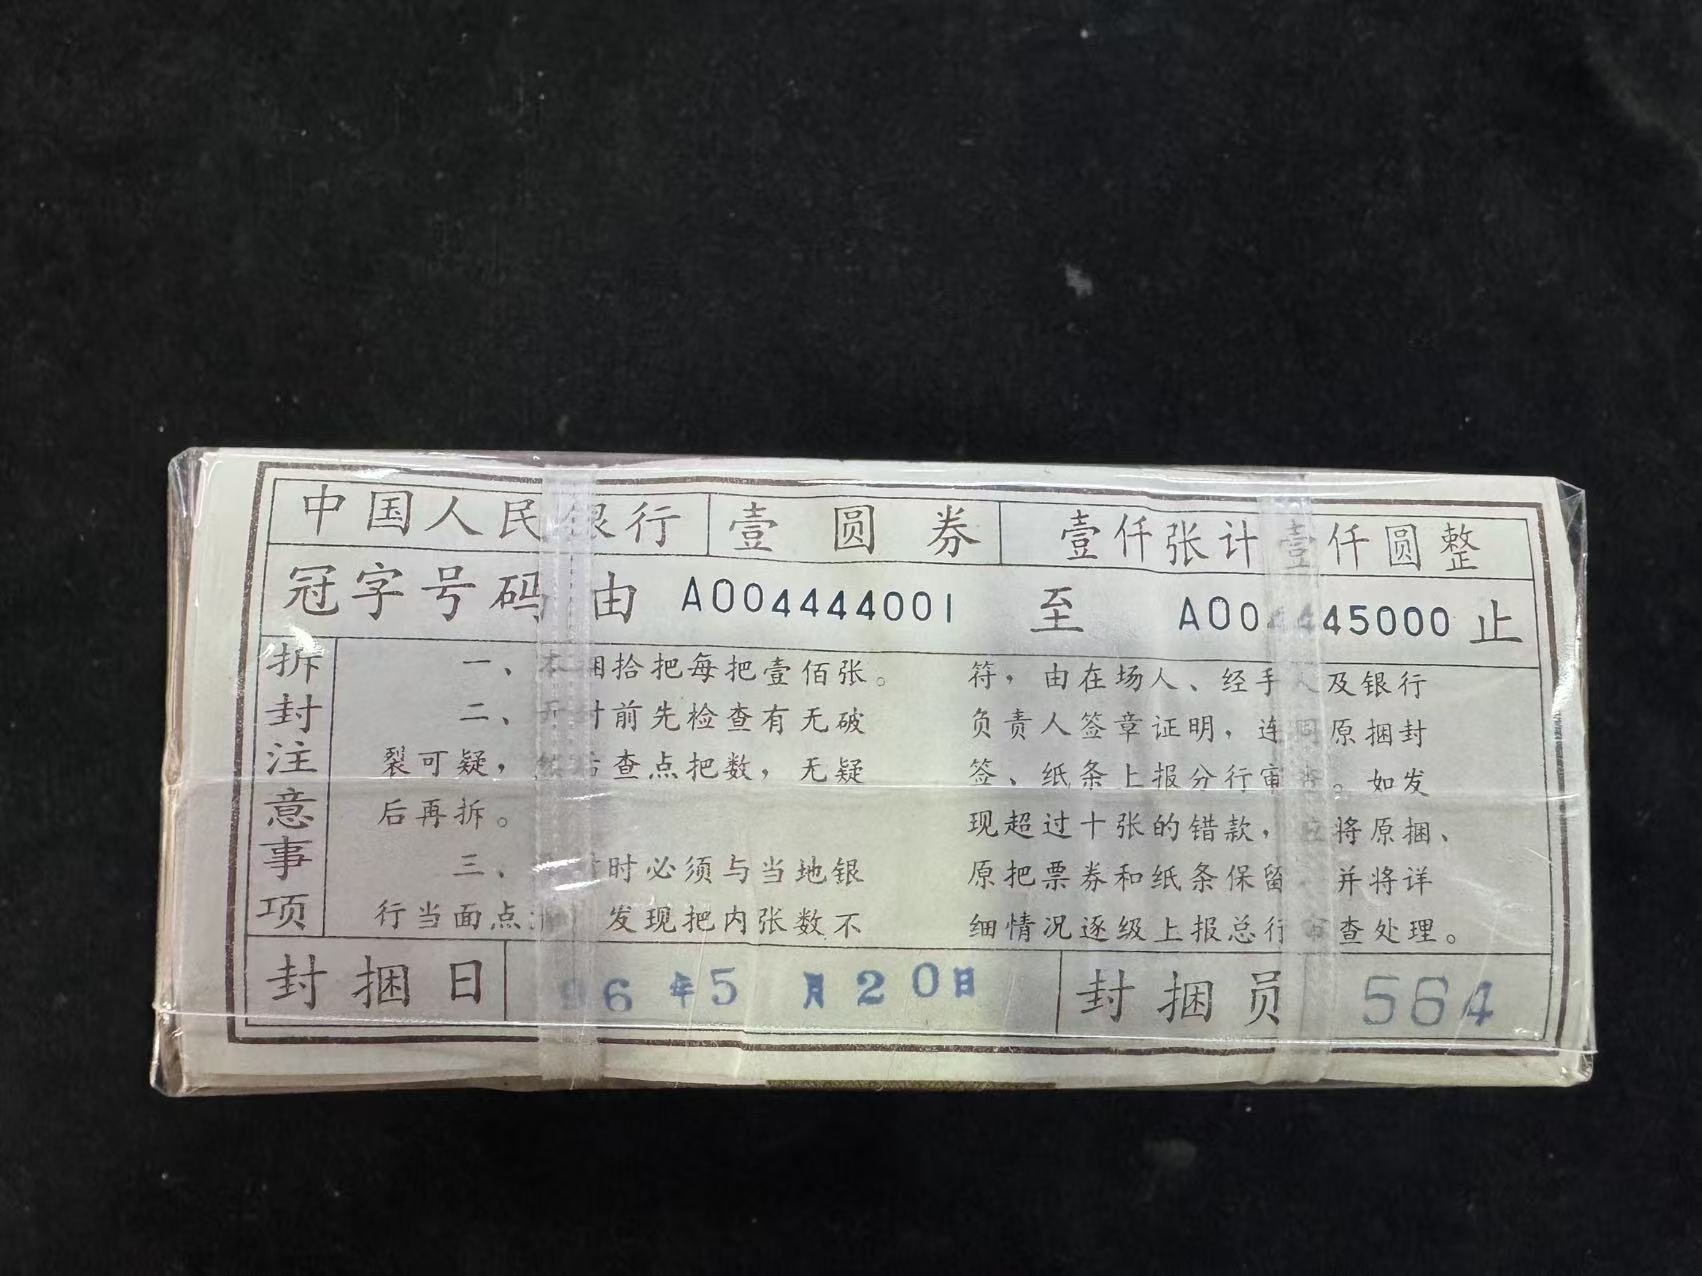 中国人民银行 壹圆券 壹仟张计壹仟圆整
冠字号码由 A004444001 至 A004445000 止
拆封注意事项
一、本捆拾把每把壹佰张。
二、开封前先检查有无破
裂可疑，然后查点把数，无疑
后再拆。
三、 时必须与当地银
行当面点 发现把内张数不
符，由在场人、经手人及银行
负责人签章证明，连同原捆封
签、纸条上报分行审查。如发
现超过十张的错款，应将原捆、
原把票券和纸条保留，并将详
细情况逐级上报总行审查处理。
封捆日 96年5月20日 封捆员 564